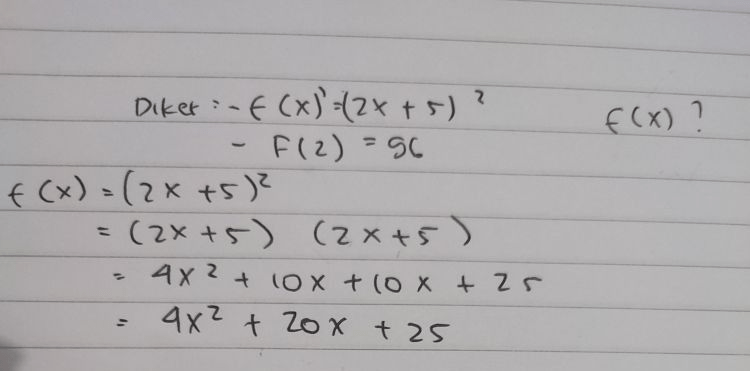 Diket : - f(x)' = (2x + 5)² f(x) ?
- F(2) = 96
f(x) = (2x + 5)²
= (2x + 5) (2x + 5)
= 4x² + 10x + 10x + 25
= 4x² + 20x + 25